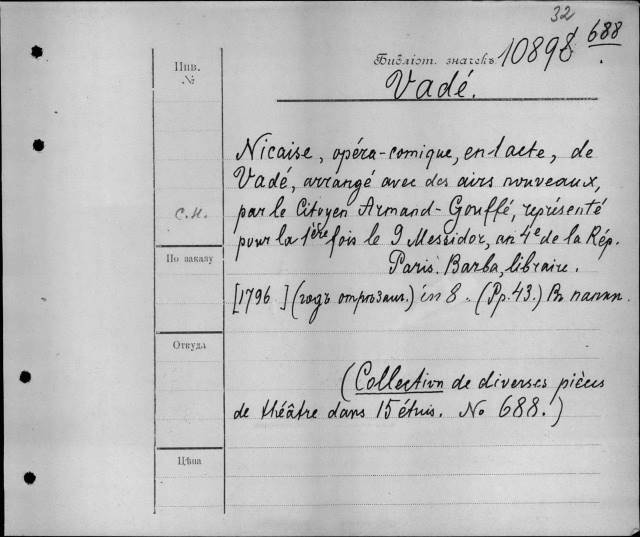 32
688
Библіот. значекъ
Vadé.
Инв.
№
Nicaise, opéra-comique, en 1 acte, de
Vadé, arrangé avec des airs nouveaux,
par le Citoyen Armand-Gouffé, représenté
pour la 1ère fois le 9 Messidor, an 4e de la Rép.
Paris. Barba, libraire.
[1796] (годъ отрѣзан.) in 8. (Pp. 43.) Въ папк.
С.И.
По заказу
Откуда
(Collection de diverses pièces
de théâtre dans 15 étuis. No 688.)
Цѣна